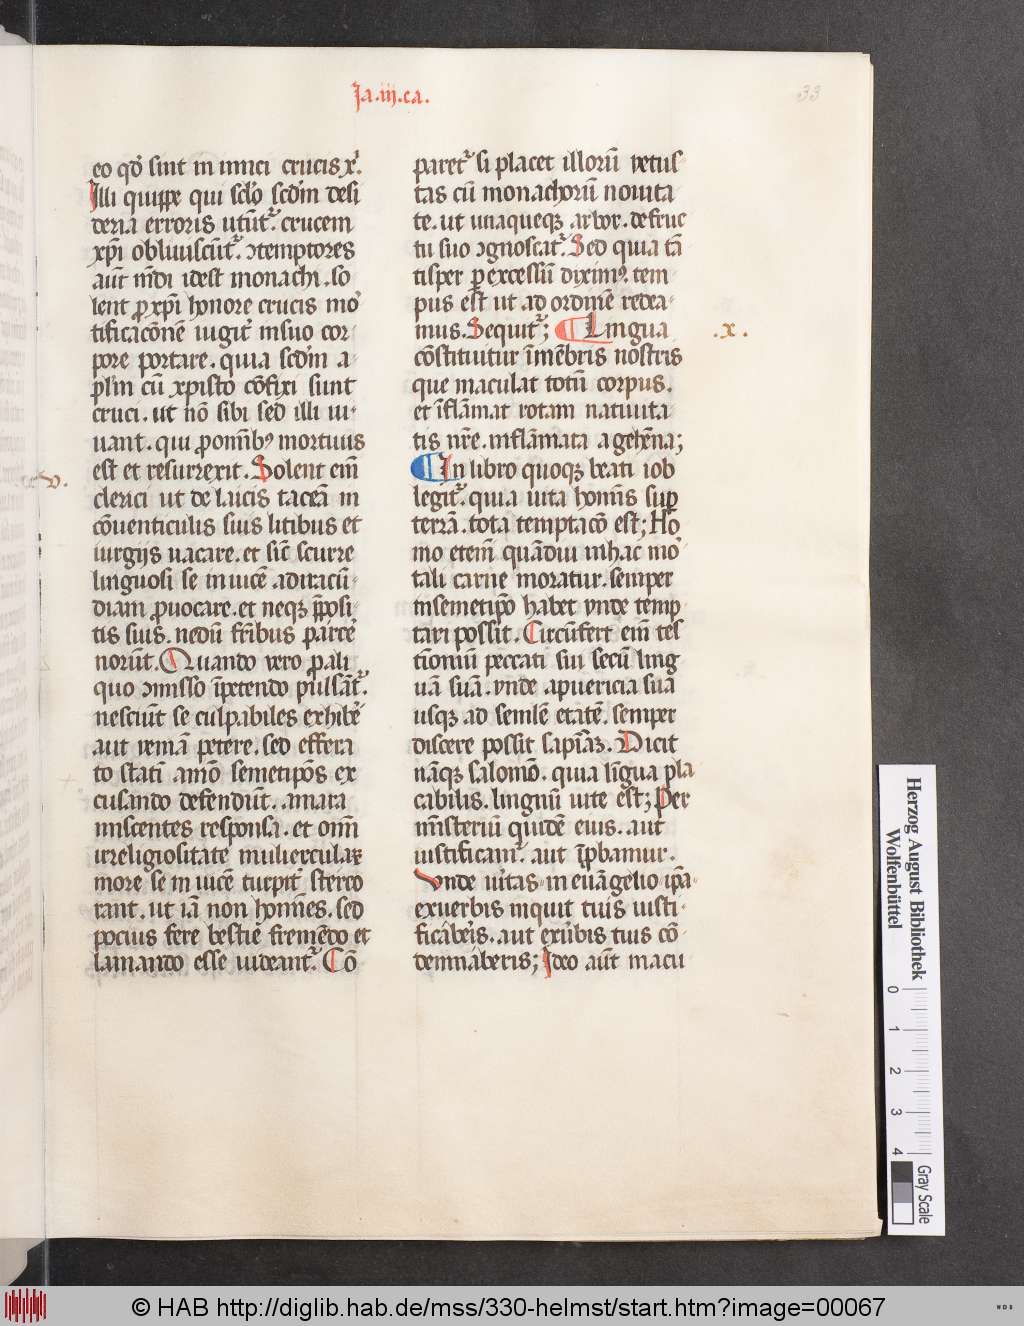 Ja.iij.ca.
33
eo qd̕ sint in imici crucis x̕.
Illi quippe qui sclo̕ scdm̅ desi
deria erroris utūt̕. crucem
xp̅i obliuiscūt̕. ↄtemptores
aūt m̅di idest monachi. so
lent ꝓ xp̅i honore crucis mo̕
tificacōne iugit̕ in suo cor
pore portare. quia scdm̅ a
plm̅ cū xpisto cōfixi sunt
cruci. ut nō sibi sed illi ui
uant. qui ꝓ omīb⁹ mortuus
est et resurrexit. Solent eīm
clerici ut de laicis taceā in
cōuenticulis suis litibus et
iurgijs uacare. et sic̅ scurre
linguosi se inuicē ad iracū
diam ꝓuocare. et neqꝫ p̅posi
tis suis. nedū frībus parce̕
norūt. Quando vero ꝓ ali
quo ↄmisso īpetendo pulsāt̕.
nesciūt se culpabiles exhibe̕
aut veniā petere. sed effera
to statī aīmo semetipōs ex
cusando defendūt. amara
miscentes responsa. et omī
irreligiositate muliercularꝫ
more se inuicē turpit̕ sterco
rant. ut iā non homīes. sed
pocius fere bestie fremēdo et
lamando esse uideant̕. Cō
paret̕ si placet illorū vetus
tas cū monachorū nouita
te. ut unaqueqꝫ arbor. de fruc
tu suo ↄgnoscat̕. Sed quia tā
tisper ꝑ excessū diximꝰ. tem
pus est ut ad ordinē redea
mus. Sequit̕; ¶ Lingua
.x.
cōstituitur ī mēbris nostris
que maculat totū corpus.
et īflāmat rotam natiuita
tis nr̅e. inflāmata a gehēna;
¶ In libro quoqꝫ beati iob
legit̕. quia uita homīs suꝑ
terrā. tota temptacō est; Ho
mo eteīm quādiu in hac mo̕
tali carne moratur. semper
in semetipo̅ habet vnde temp
tari possit. Circūfert eīm tes
tīoniū peccati sui secū ling
uā suā. vnde a puericia sua
usqꝫ ad senilē etatē. semper
discere possit sapīaꝫ. Dicit
nāqꝫ salomō. quia līgua pla
cabilis. lingnū uite est; Per
mīsteriū quidē eius. aut
iustificam̕. aut īpbamur.
Vnde uitas in euāgelio ip̅a
ex uerbis inquit tuis iusti
ficabe̕is. aut ex ūbis tuis cō
demnaberis; Ideo aūt macu
Herzog August Bibliothek
Wolfenbüttel
0
1
2
3
4
Gray Scale
© HAB http://diglib.hab.de/mss/330-helmst/start.htm?image=00067